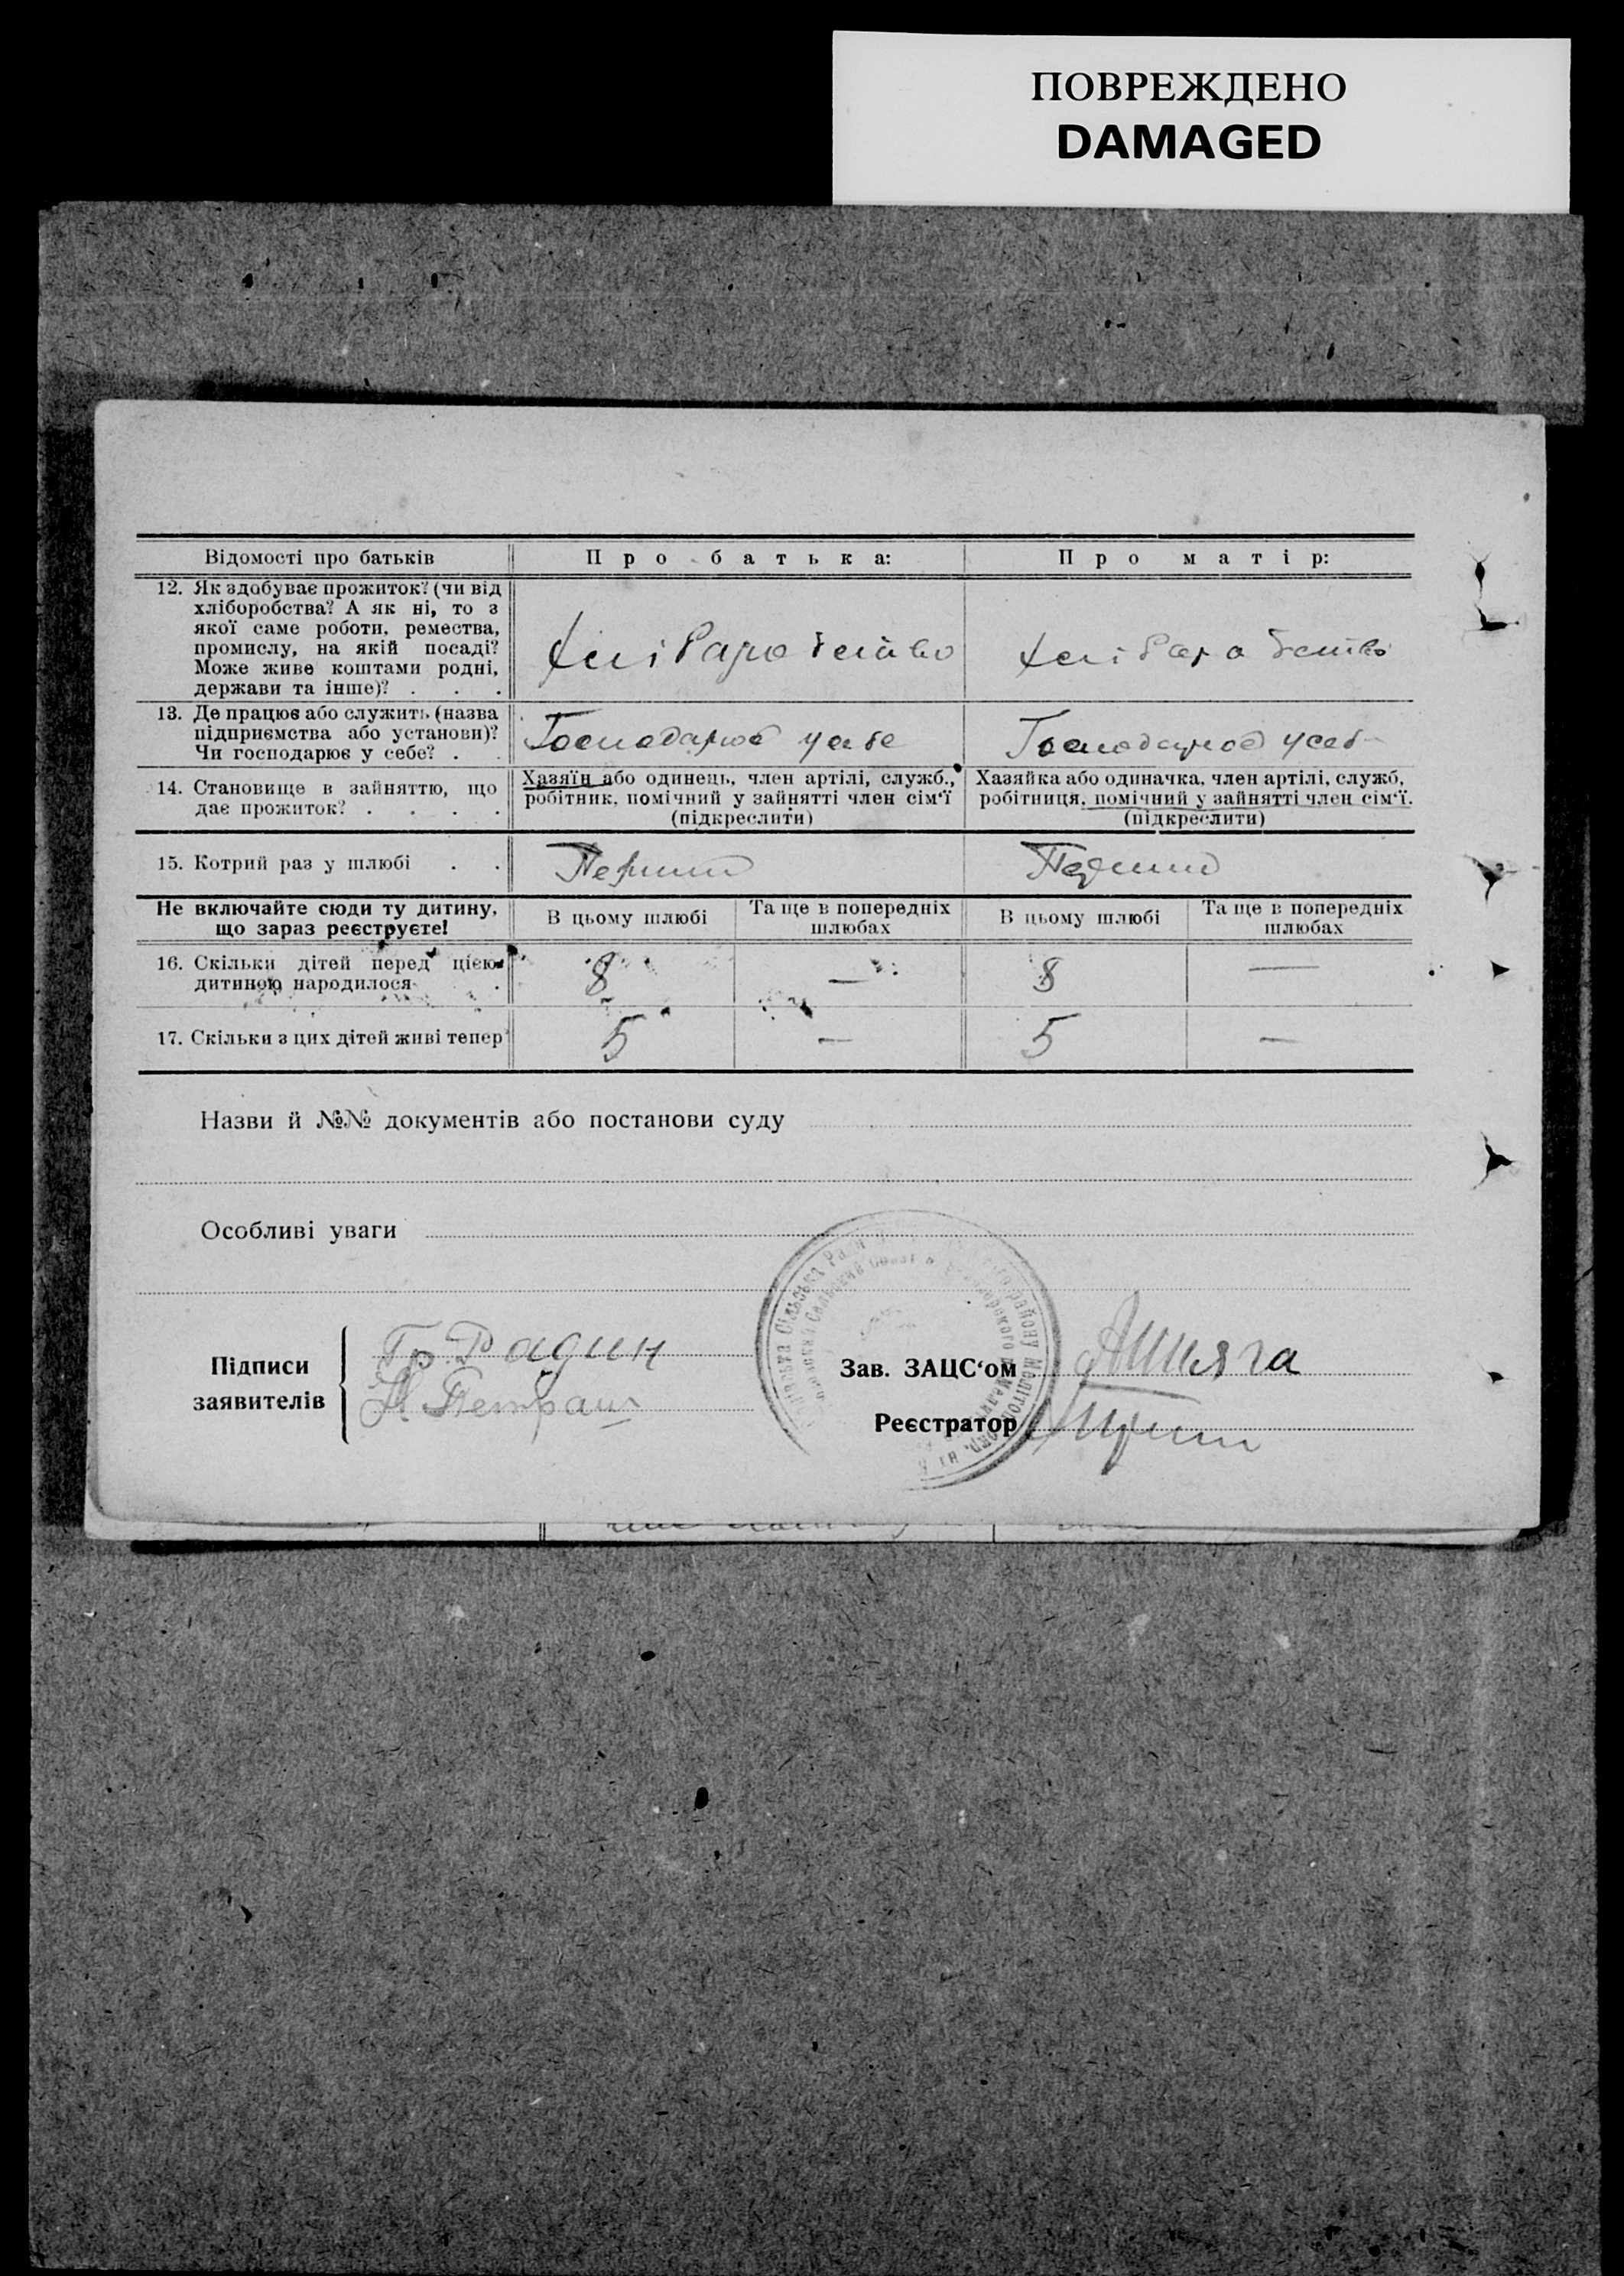 ПОВРЕЖДЕНО
DAMAGED
Відомості про батьків
Про батька:
Про матір:
12. Як здобуває прожиток? (чи від
хліборобства? А як ні, то з
якої саме роботи, ремества,
промислу, на якій посаді?
Може живе коштами родні,
держави та інше)? . . .
Хлібаробство
Хлібаробство
13. Де працює або служить (назва
підприємства або установи)?
Чи господарює у себе? . .
Господарює у себе
Господарює у себ
14. Становище в зайняттю, що
дає прожиток? . . . .
Хазяїн або одинець, член артілі, служб.,
робітник, помічний у зайнятті член сім'ї
(підкреслити)
Хазяйка або одиначка, член артілі, служб,
робітниця, помічний у зайнятті член сім'ї.
(підкреслити)
15. Котрий раз у шлюбі . .
Перший
Перший
Не включайте сюди ту дитину,
що зараз реєструєте!
В цьому шлюбі
Та ще в попередніх
шлюбах
В цьому шлюбі
Та ще в попередніх
шлюбах
16. Скільки дітей перед цією
дитиною народилося .
8
—
8
—
17. Скільки з цих дітей живі тепер
5
—
5
—
Назви й №№ документів або постанови суду
Особливі уваги
Підписи
заявителів
Гр. Радин
Н Петраш
Зав. ЗАЦС'ом
Реєстратор
Сільська Ра
району Мелітоп